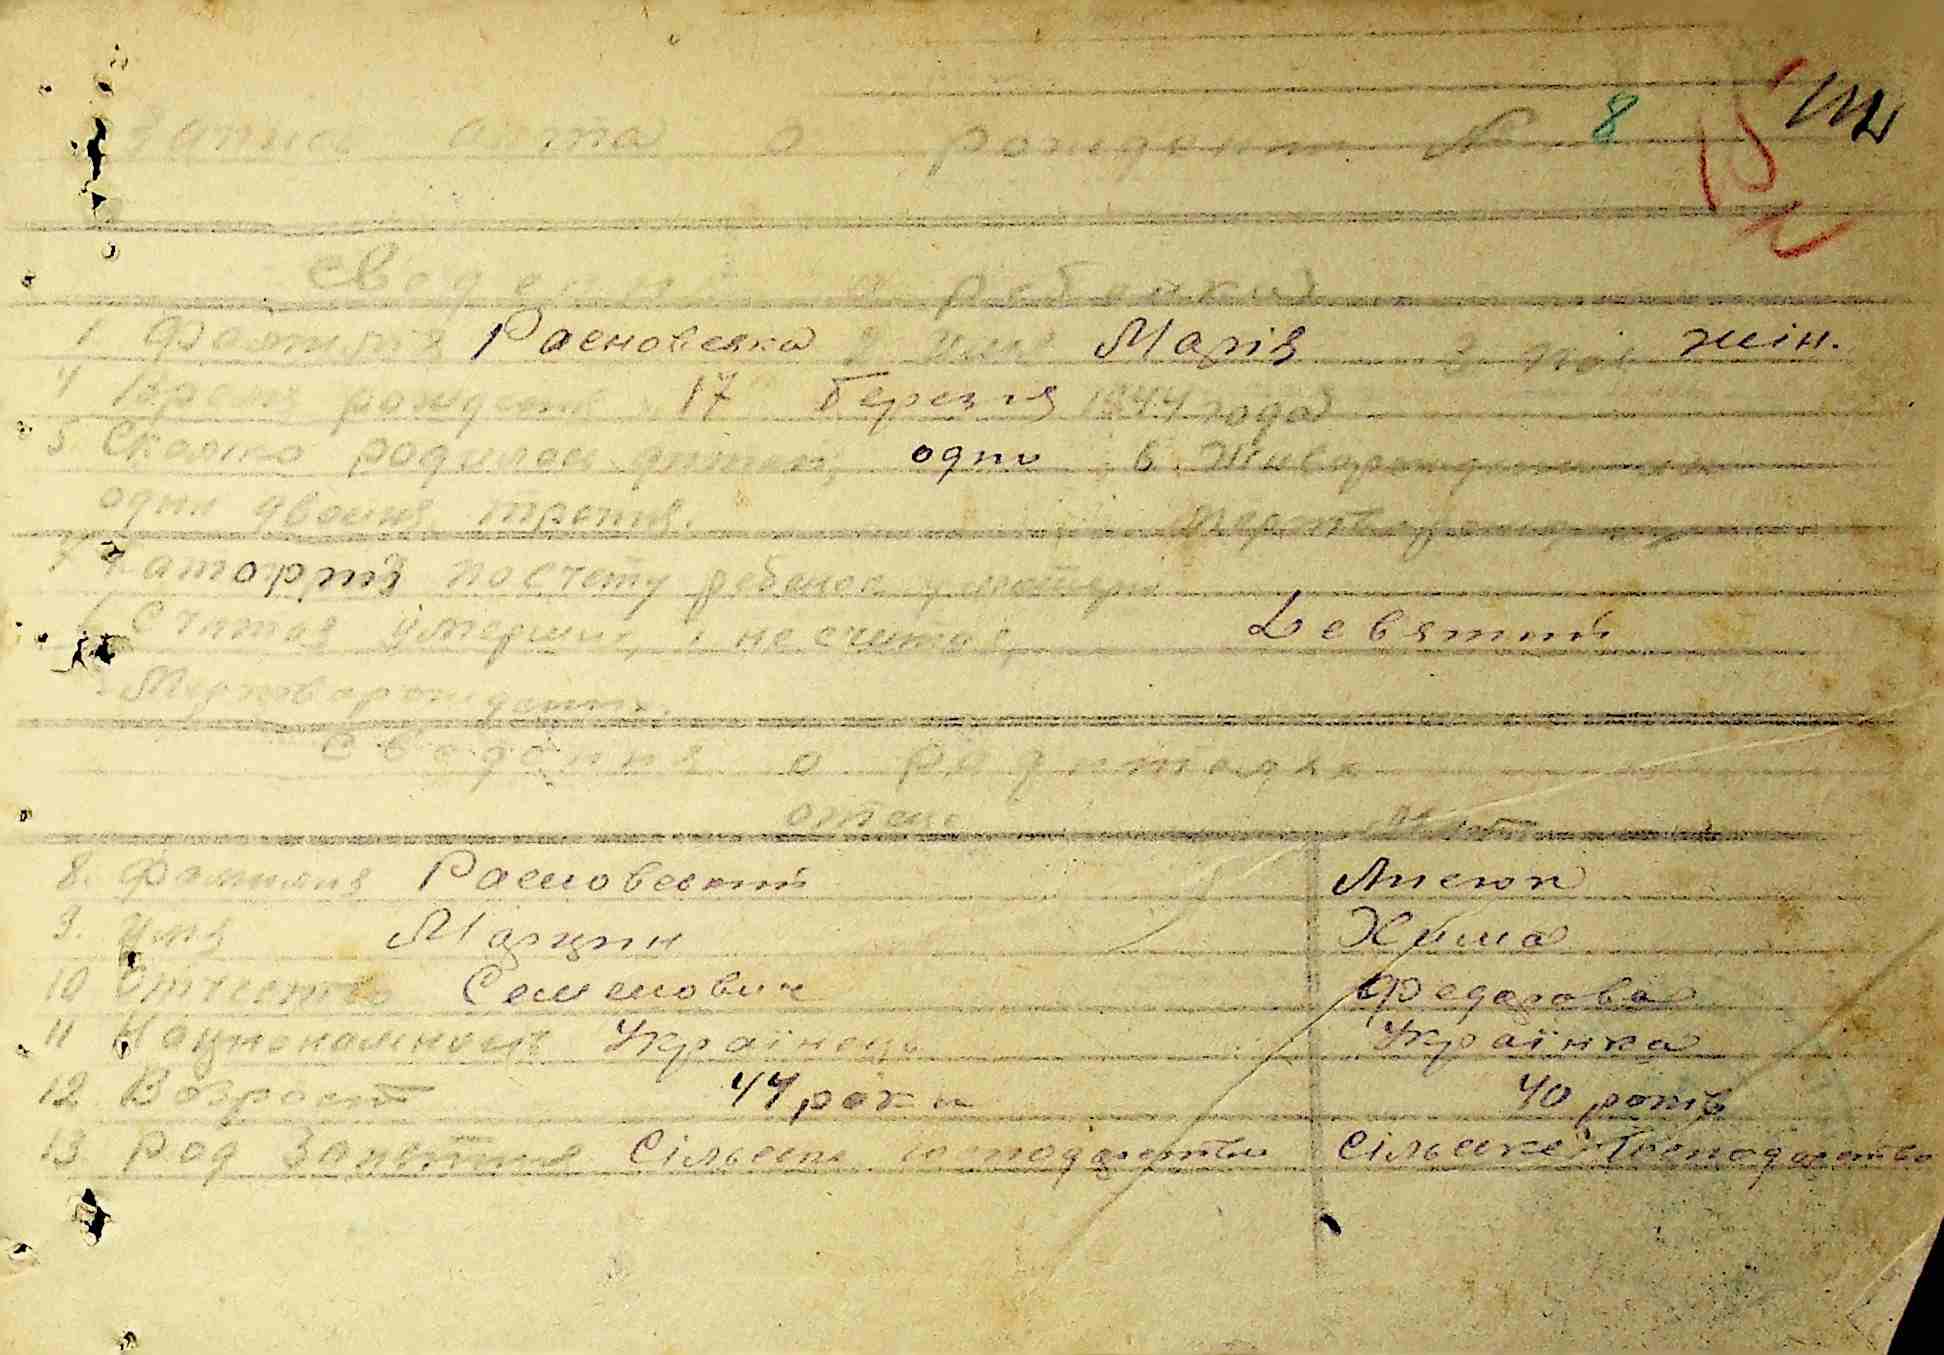 Запис акта о рождении № 8
Сведения о ребенке
1 Фамилия Расновска 2 имя Марія 3 пол жін.
4 Время рождения 17 березня 1944 года
5. Сколко родилось дитей, одно 6. Живорожденним
одна двойня тройня. Мертворожденним
7 каторий по счету ребенок у матери
Считая умерших, и не считая, Девятий
Мертворожденних.
Сведения о родителях
отец мать
8. Фамилия Расновский Лисюк
9. имя Марцин Хима
10 Отчество Семенович Федорова
11 Национальность Українець Українка
12 Возраст 44 роки 40 років
13 Род Занятия Сільське господарство Сільське Господарство